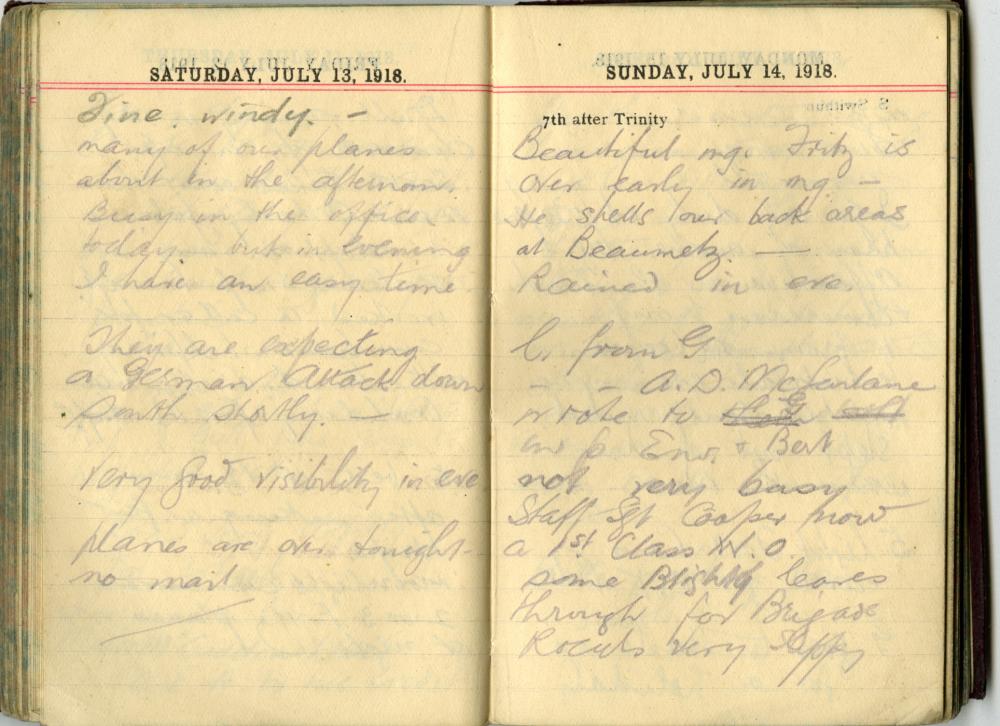 SATURDAY, JULY 13, 1918.
Fine. windy. —
many of our planes
about in the afternoon.
Busy in the office
today — but in evening
I have an easy time
They are expecting
a German Attack down
South shortly. —
Very good visibility in eve
planes are over tonight —
no mail
SUNDAY, JULY 14, 1918.
7th after Trinity
Beautiful mg. Fritz is
over early in mg —
He shells our back areas
at Beaumetz. —
Rained in eve.
L. from G
— — A. D. McFarlane
wrote to
Env. & Bert
not very busy
Staff Sgt Cooper now
a 1st Class W.O.
some Blighty leaves
through for Brigade
Roads very sloppy